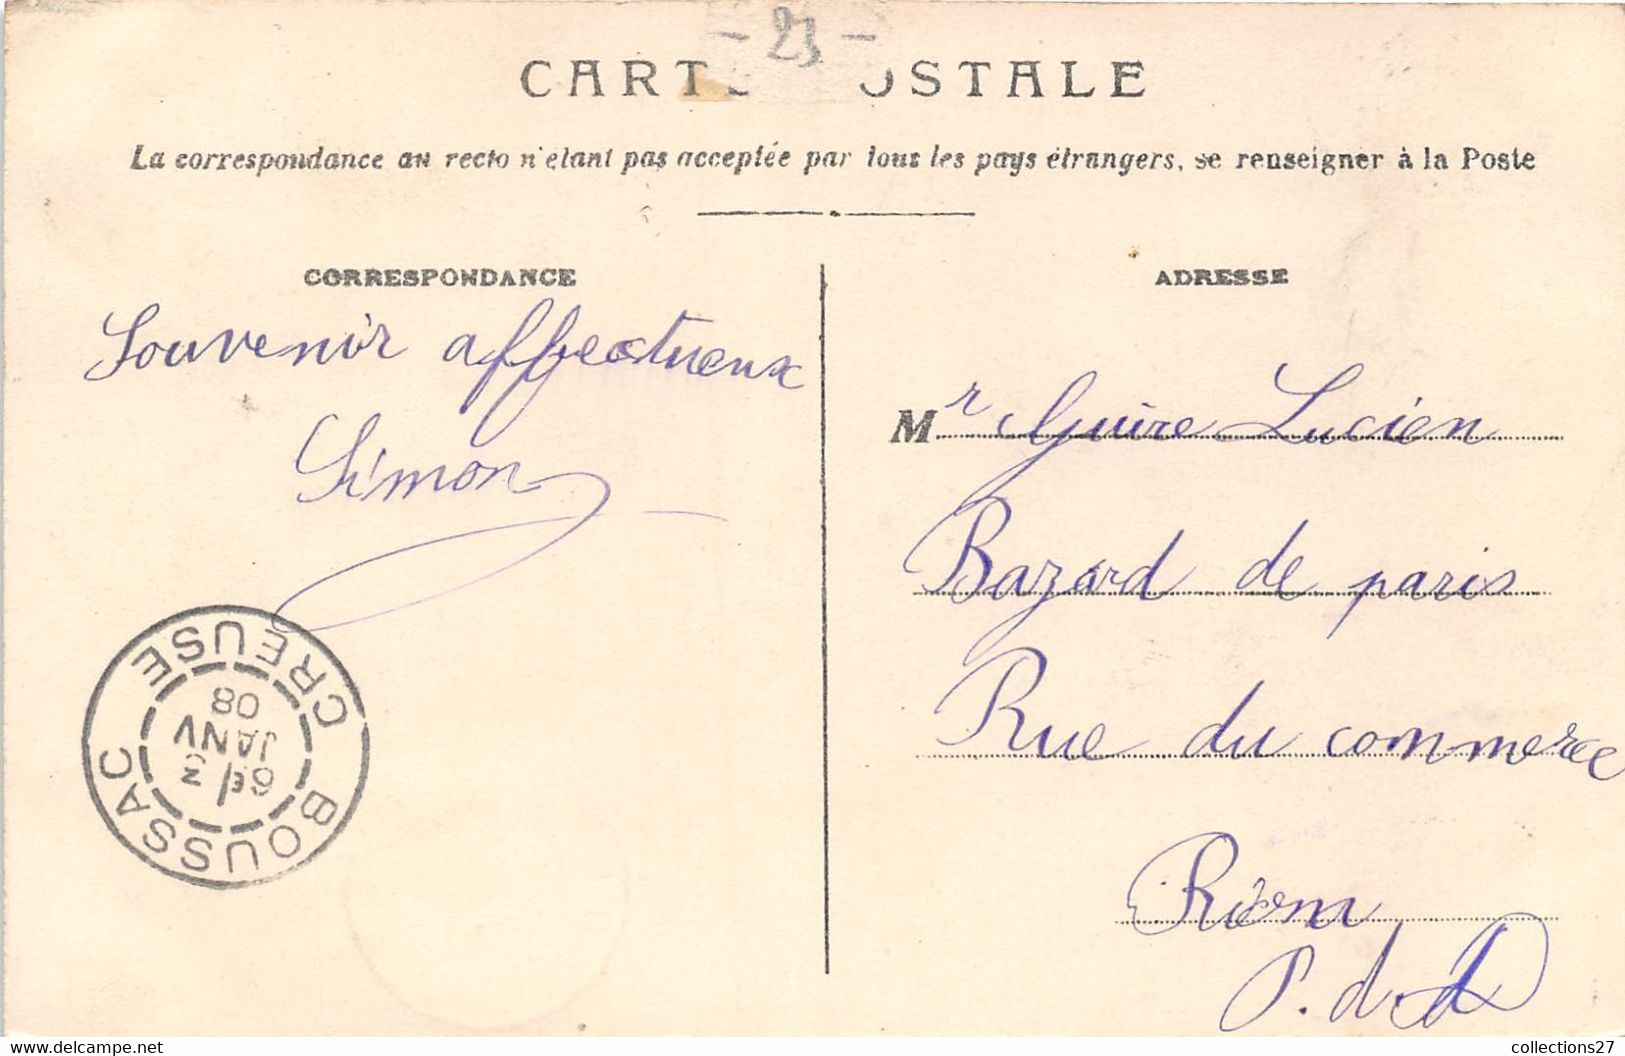 - 23 -
CARTE POSTALE
La correspondance au recto n'étant pas acceptée par tous les pays étrangers, se renseigner à la Poste
CORRESPONDANCE
Souvenir affectueux
Simon
ADRESSE
Mr Guire Lucien
Bazard de paris
Rue du commerce
Riom
P. d. D
BOUSSAC
CREUSE
6E/ 3
JANV
08
collections27